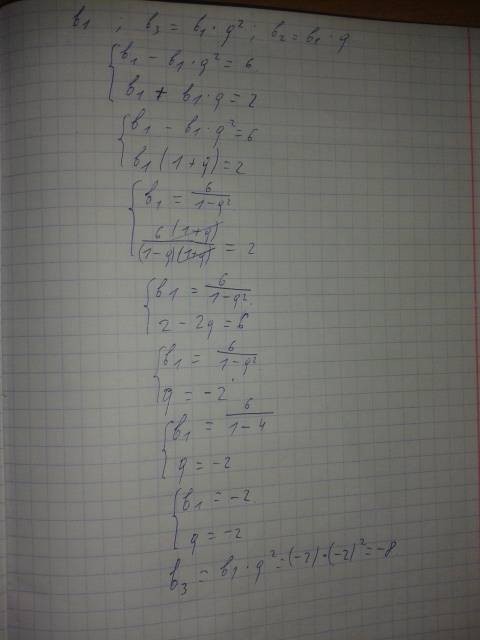 b₁ ; b₃ = b₁ · q² ; b₂ = b₁ · q
b₁ − b₁ · q² = 6
b₁ + b₁ · q = 2
b₁ − b₁ · q² = 6
b₁ (1 + q) = 2
b₁ = 6/(1−q²)
6(1+q)/((1−q)(1+q)) = 2
b₁ = 6/(1−q²)
2 − 2q = 6
b₁ = 6/(1−q²)
q = −2
b₁ = 6/(1−4)
q = −2
b₁ = −2
q = −2
b₃ = b₁ · q² = (−2) · (−2)² = −8